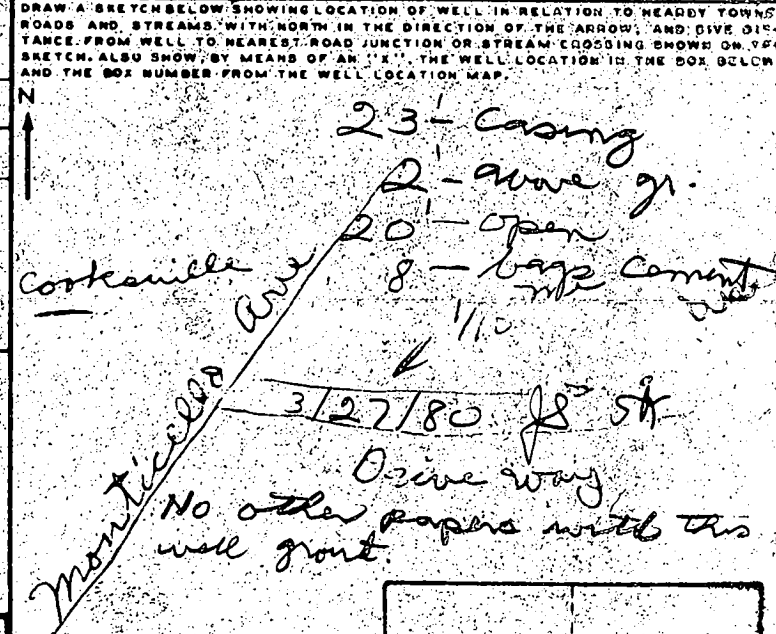 DRAW A SKETCH BELOW SHOWING LOCATION OF WELL IN RELATION TO NEARBY TOWNS
ROADS AND STREAMS WITH NORTH IN THE DIRECTION OF THE ARROW, AND GIVE DIS-
TANCE FROM WELL TO NEAREST ROAD JUNCTION OR STREAM CROSSING SHOWN ON
SKETCH. ALSO SHOW, BY MEANS OF AN "X", THE WELL LOCATION IN THE BOX BELOW
AND THE BOX NUMBER FROM THE WELL LOCATION MAP.
N
23' - Casing
2' - above gr.
20' - open
Cooksville
8 - bags cement
mi
1/10
Monticello Ave
3/27/80
Drive way
No other papers with this
well grout.